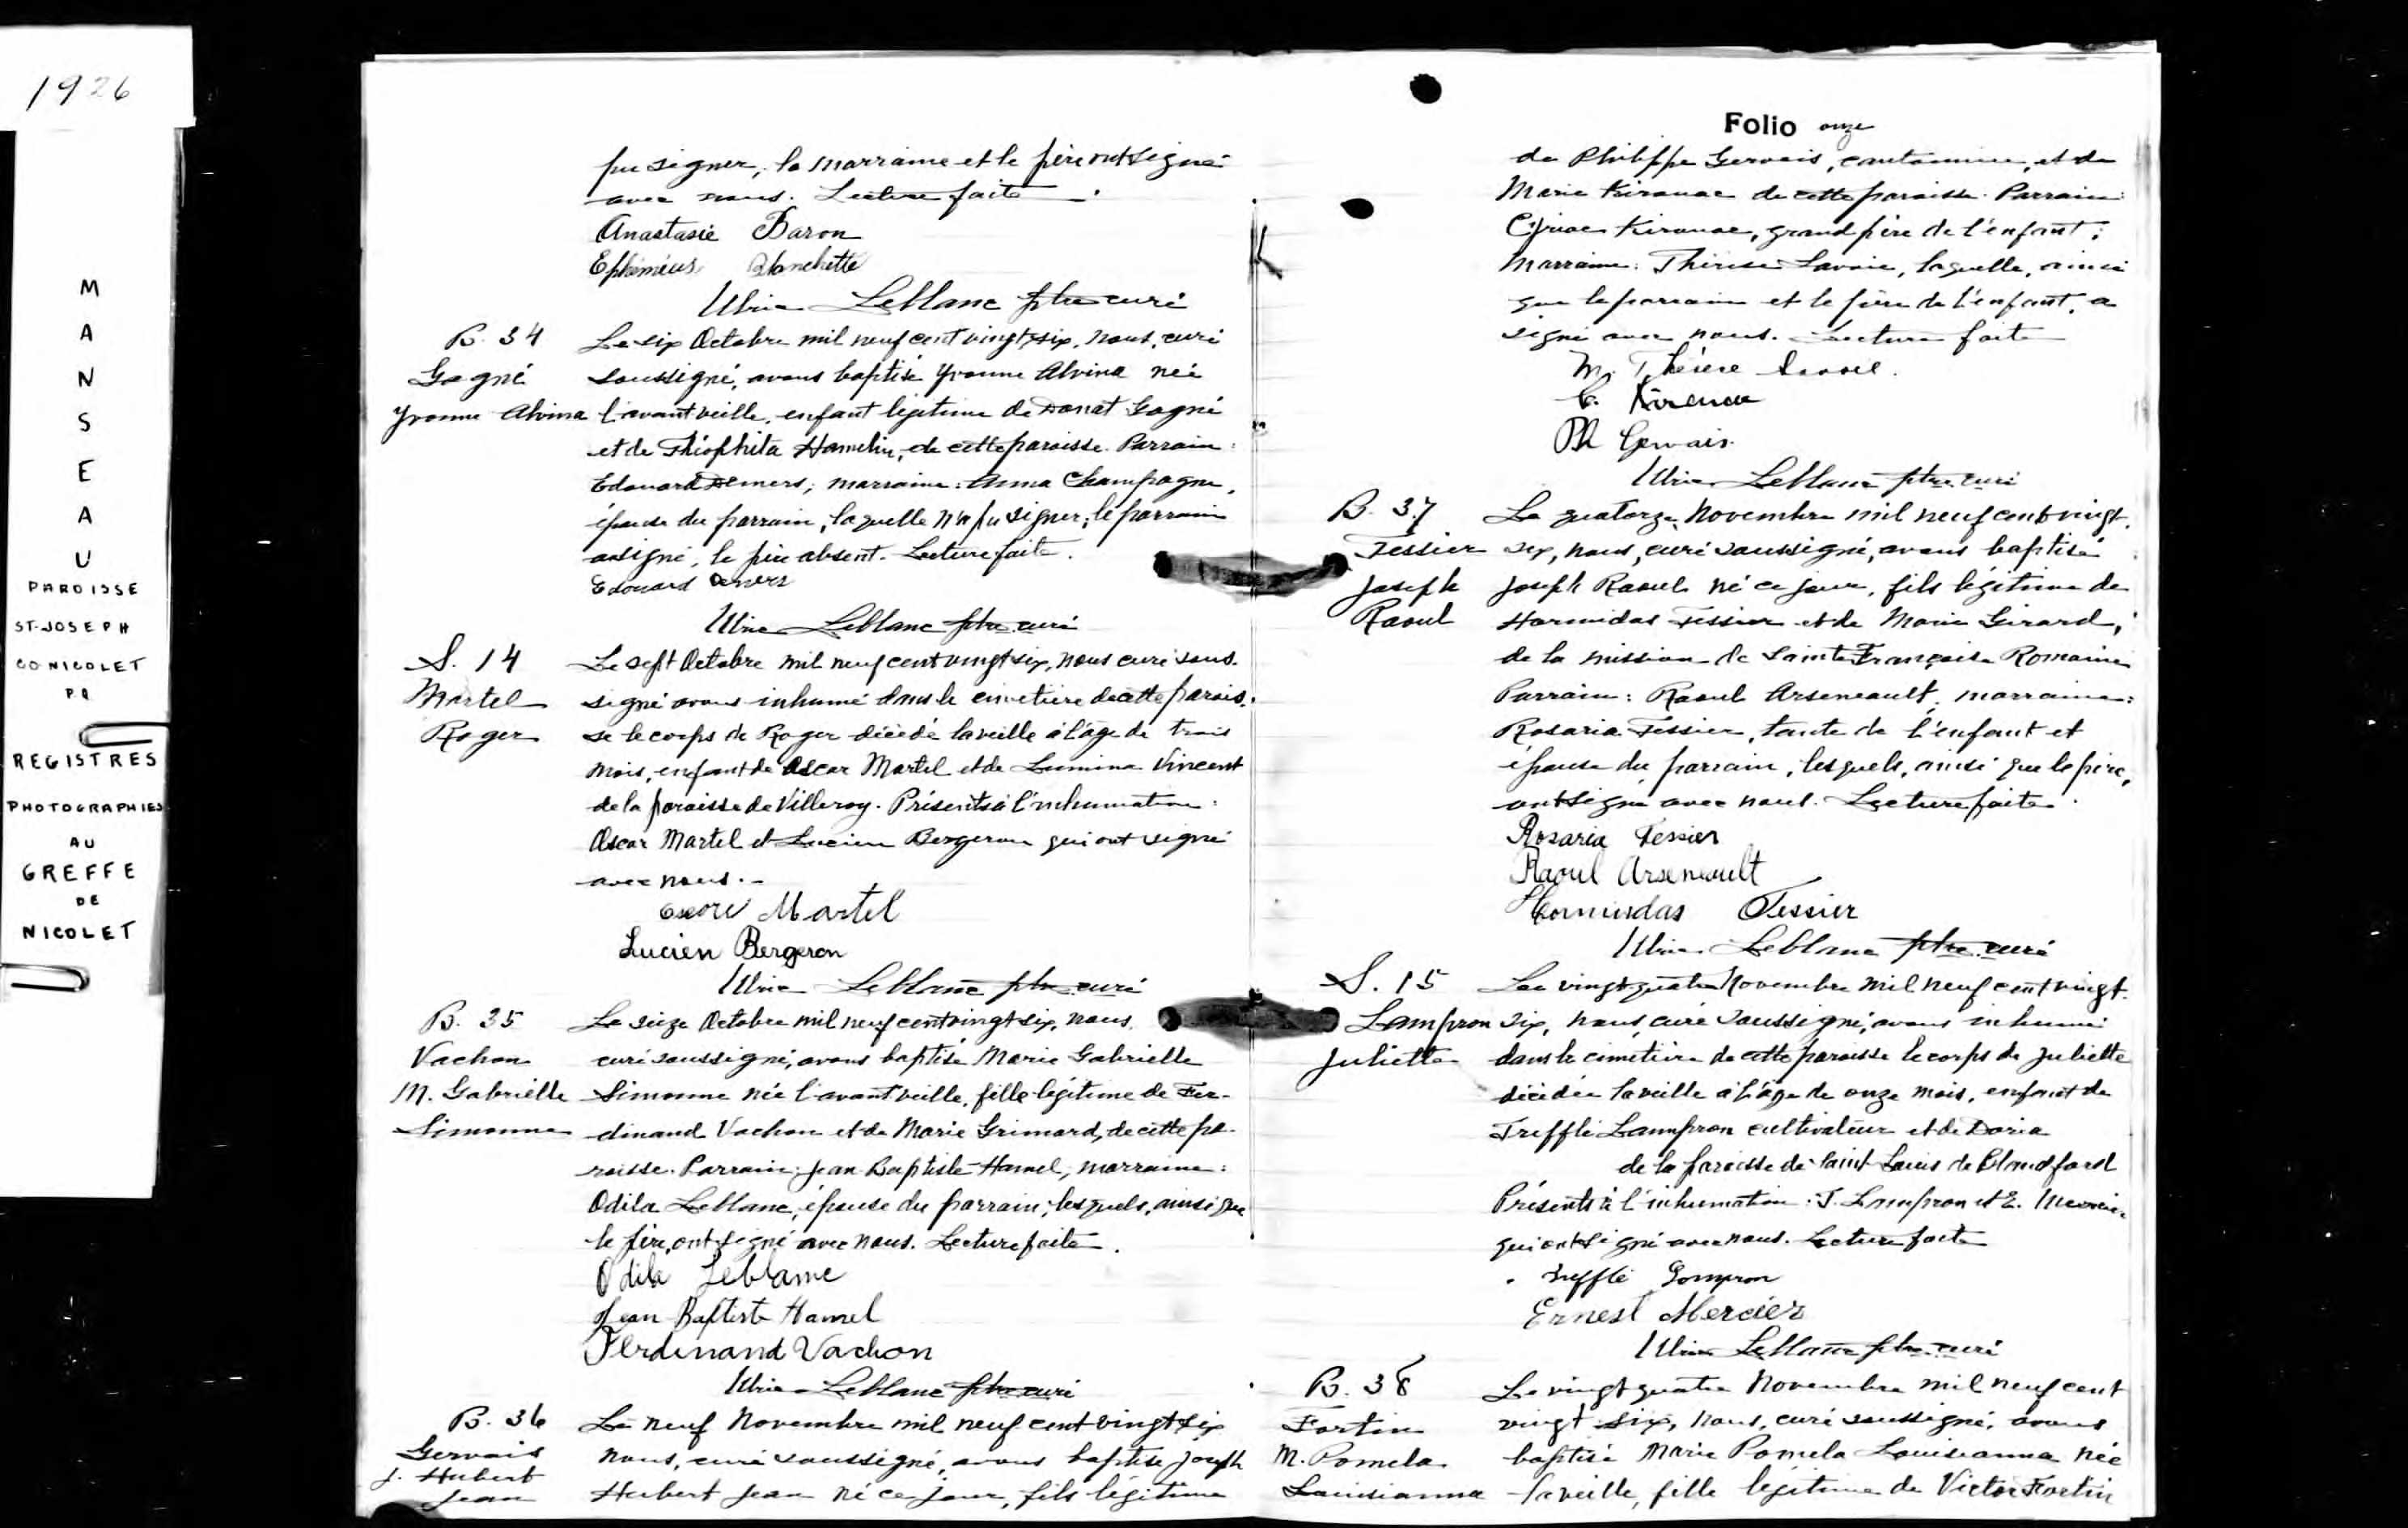 1926
M
A
N
S
E
A
U
PAROISSE
ST-JOSEPH
CO NICOLET
P.Q
REGISTRES
PHOTOGRAPHIES
AU
GREFFE
DE
NICOLET
pu signer, la marraine et le père ont signé
avec nous. Lecture faite.
Anastasie Baron
Blanchette
Ulric Leblanc ptre curé
B. 34
Gagné
Yvonne Alvina
Le six Octobre mil neuf cent vingt-six, nous, curé
soussigné, avons baptisé Yvonne Alvina née
l'avant veille, enfant légitime de Donat Gagné
et de Théophila Hamelin, de cette paroisse. Parrain:
Edouard Demers; marraine: Anna Champagne,
épouse du parrain, laquelle n'a pu signer; le parrain
a signé, le père absent. Lecture faite.
Edouard Demers
Ulric Leblanc ptre curé
S. 14
Martel
Roger
Le sept Octobre mil neuf cent vingt six, nous curé sous-
signé avons inhumé dans le cimetière de cette parois-
se le corps de Roger décédé la veille à l'âge de trois
mois, enfant de Oscar Martel et de Lumina Vincent
de la paroisse de Villeroy. Présents à l'inhumation:
Oscar Martel et Lucien Bergeron qui ont signé
avec nous.-
Martel
Lucien Bergeron
Ulric Leblanc ptre curé
B. 35
Vachon
M. Gabrielle
Simonne
Le seize Octobre mil neuf cent vingt six, nous,
curé soussigné, avons baptisé Marie Gabrielle
Simonne née l'avant veille, fille légitime de Fer-
dinand Vachon et de Marie Grimard, de cette pa-
roisse. Parrain: Jean-Baptiste Hamel, marraine:
Odila Leblanc, épouse du parrain; lesquels, ainsi que
le père, ont signé avec nous. Lecture faite.
Odila Leblanc
Jean Baptiste Hamel
Ferdinand Vachon
Ulric Leblanc ptre curé
B. 36
Gervais
J. Hubert
Jean
Le neuf Novembre mil neuf cent vingt six
nous, curé soussigné, avons baptisé Joseph
Hubert Jean né ce jour, fils légitime
Folio onze
de Philippe Gervais, et de
Marie Kirouac de cette paroisse. Parrain:
Cyriac Kirouac, grand père de l'enfant;
marraine: Thérèse Lavoie, laquelle, ainsi
que le parrain et le père de l'enfant, a
signé avec nous. Lecture faite
M. Thérèse Lavoie.
C. Kirouac
Ph Gervais.
Ulric Leblanc ptre curé
B. 37
Tessier
Joseph
Raoul
Le quatorze Novembre mil neuf cent vingt-
six, nous, curé soussigné, avons baptisé
Joseph Raoul né ce jour, fils légitime de
Hormidas Tessier et de Marie Girard,
de la mission de Sainte Françoise Romaine
Parrain: Raoul Arseneault, marraine:
Rosaria Tessier, tante de l'enfant et
épouse du parrain, lesquels, ainsi que le père,
ont signé avec nous. Lecture faite.
Rosaria Tessier
Raoul Arseneault
Hormisdas Tessier
Ulric Leblanc ptre curé
S. 15
Lampron
Juliette
Le vingt-quatre Novembre mil neuf cent vingt-
six, nous, curé soussigné, avons inhumé
dans le cimetière de cette paroisse le corps de Juliette
décédée la veille à l'âge de onze mois, enfant de
Trefflé Lampron cultivateur et de Doria
de la paroisse de Saint Louis de Blandford
Présents à l'inhumation: T. Lampron et E. Mercier
qui ont signé avec nous. Lecture faite
Trefflé Lompron
Ernest Mercier
Ulric Leblanc ptre curé
B. 38
Fortin
M. Pomela
Louisianna
Le vingt quatre Novembre mil neuf cent
vingt six, nous, curé soussigné, avons
baptisé Marie Pomela Louisianna née
la veille, fille légitime de Victor Fortin